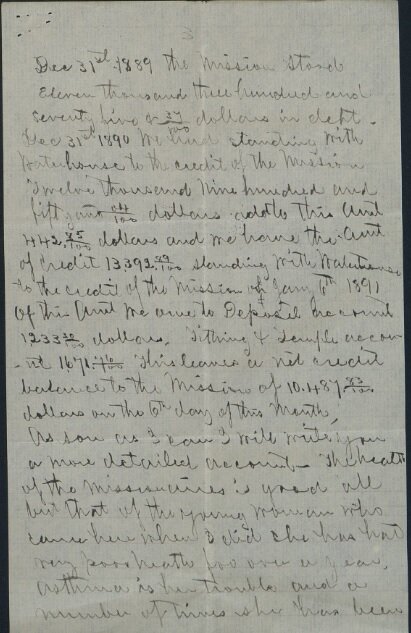 3
Dec 31st 1889 the Mission Stood
Eleven thousand three hundred and
seventy five & 37/100 dollars in debt.
Dec 31st 1890 We had standing with
Waterhouse to the credit of the Mission
Twelve thousand Nine hundred and
fifty and 04/100 dollars add to this Amt
442.85/100 dollars and we have the Amt
of Credit 13392.89/100 standing with Waterhouse
to the credit of the Mission of Jany 6th 1891
Of this Amt We owe to Deposit account
1233 dollars. Tithing & Temple accou-
nt 1671. This leaves a net credit
balance to the Mission of 10.487.83/100
dollars on the 6th day of this Month.
As son as I can I will write you
a more detailed account. The health
of the Missionaries is good all
but that of the young woman who
came here when I did she has had
very poor health for over a year,
asthma is her trouble and a
number of times she has been